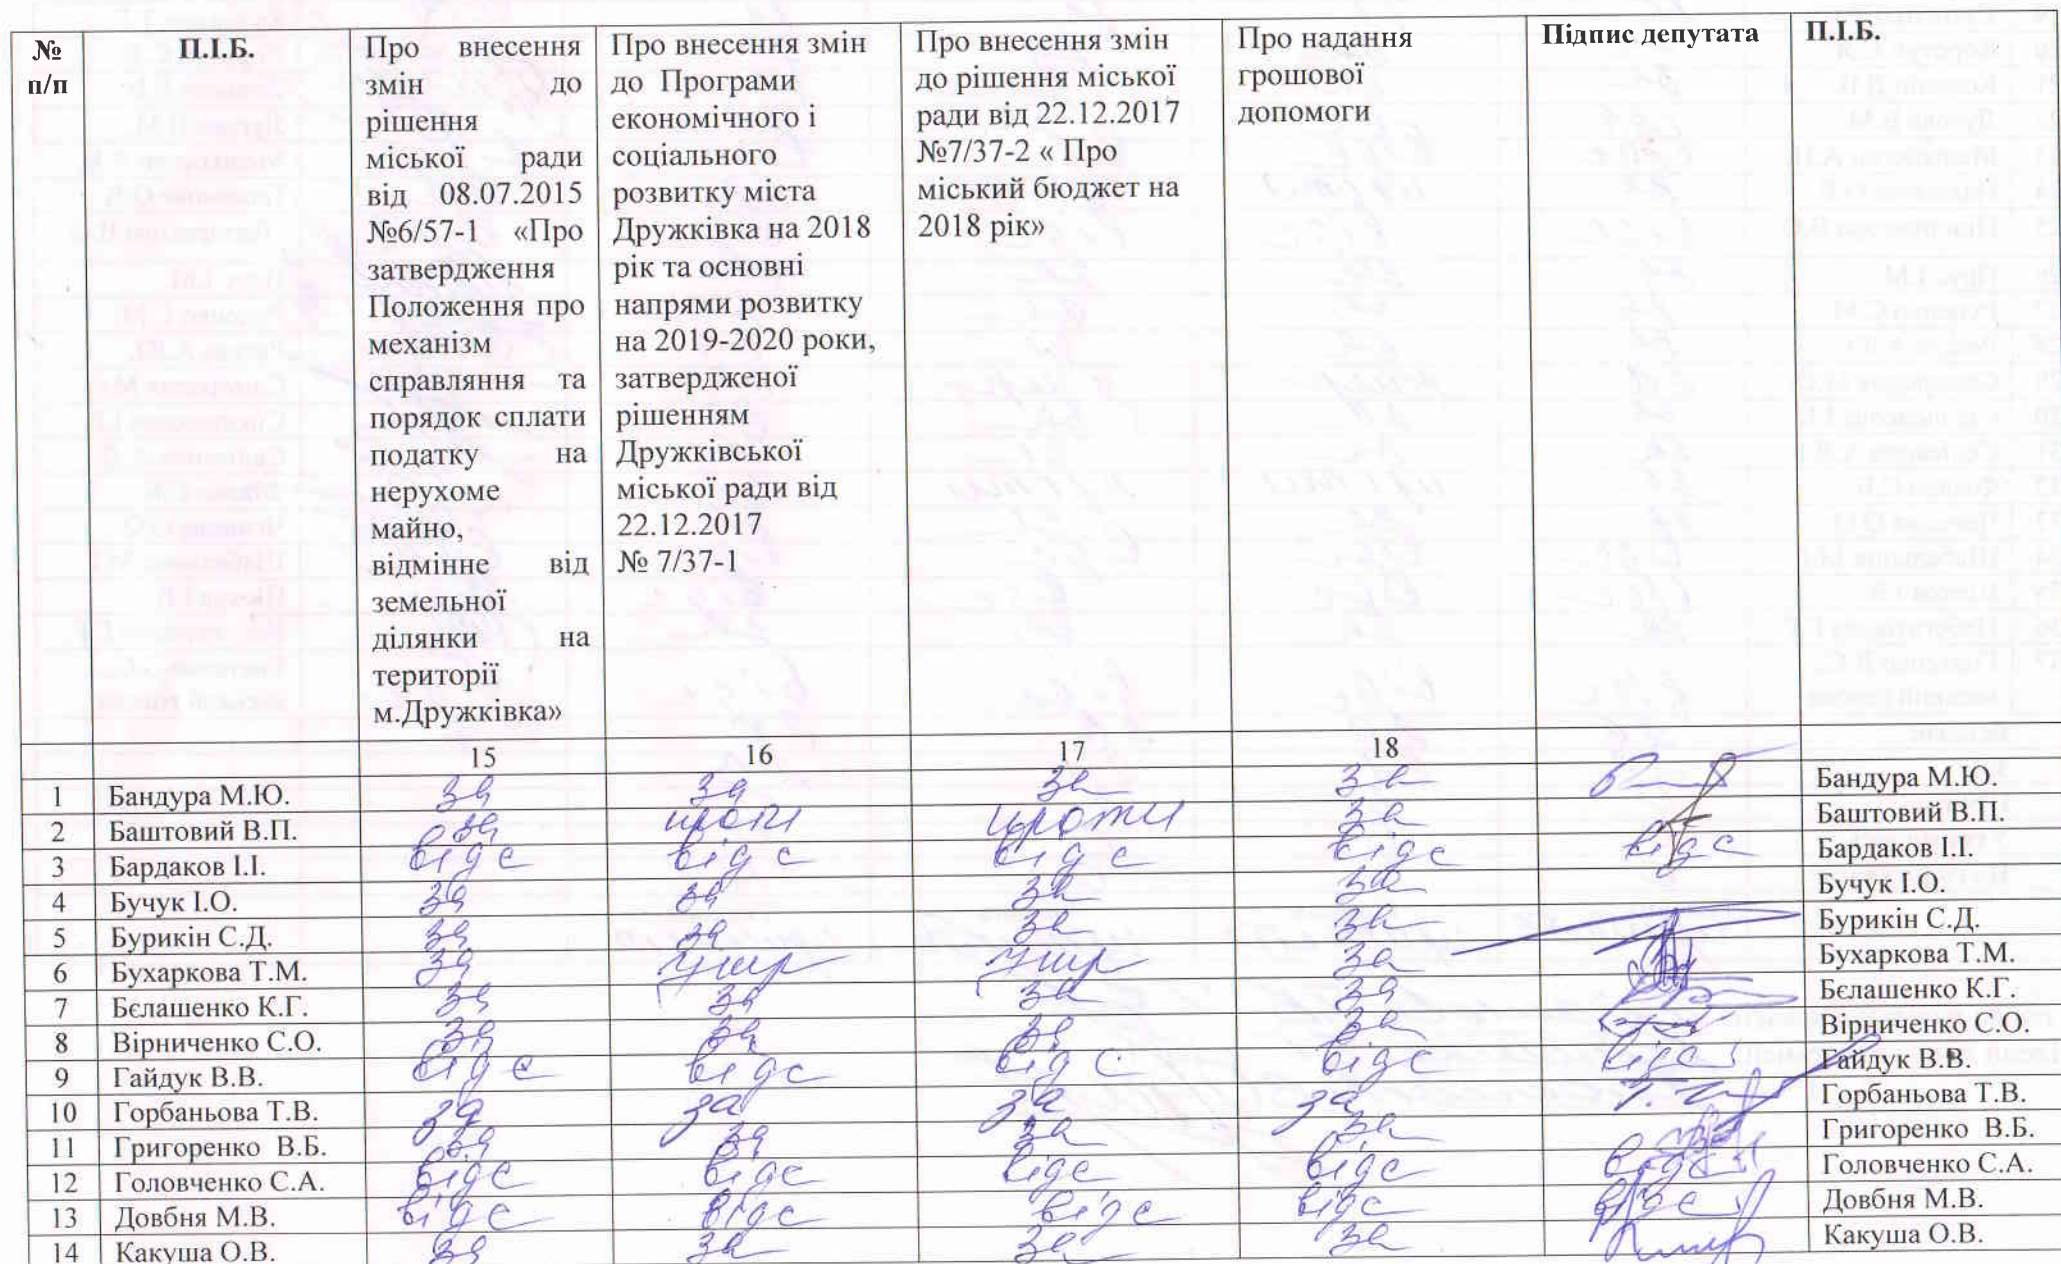 № п/п | П.І.Б. | Про внесення змін до рішення міської ради від 08.07.2015 №6/57-1 «Про затвердження Положення про механізм справляння та порядок сплати податку на нерухоме майно, відмінне від земельної ділянки на території м.Дружківка» | Про внесення змін до Програми економічного і соціального розвитку міста Дружківка на 2018 рік та основні напрями розвитку на 2019-2020 роки, затвердженої рішенням Дружківської міської ради від 22.12.2017 № 7/37-1 | Про внесення змін до рішення міської ради від 22.12.2017 №7/37-2 « Про міський бюджет на 2018 рік» | Про надання грошової допомоги | Підпис депутата | П.І.Б.
15 | 16 | 17 | 18
1 | Бандура М.Ю. | за | за | за | за | Бандура М.Ю.
2 | Баштовий В.П. | за | проти | проти | за | Баштовий В.П.
3 | Бардаков І.І. | відс | відс | відс | відс | відс | Бардаков І.І.
4 | Бучук І.О. | за | за | за | за | Бучук І.О.
5 | Бурикін С.Д. | за | за | за | за | Бурикін С.Д.
6 | Бухаркова Т.М. | за | утр | утр | за | Бухаркова Т.М.
7 | Бєлашенко К.Г. | за | за | за | за | Бєлашенко К.Г.
8 | Вірниченко С.О. | за | за | за | за | Вірниченко С.О.
9 | Гайдук В.В. | відс | відс | відс | відс | відс | Гайдук В.В.
10 | Горбаньова Т.В. | за | за | за | за | Горбаньова Т.В.
11 | Григоренко В.Б. | за | за | за | за | Григоренко В.Б.
12 | Головченко С.А. | відс | відс | відс | відс | відс | Головченко С.А.
13 | Довбня М.В. | відс | відс | відс | відс | відс | Довбня М.В.
14 | Какуша О.В. | за | за | за | за | Какуша О.В.